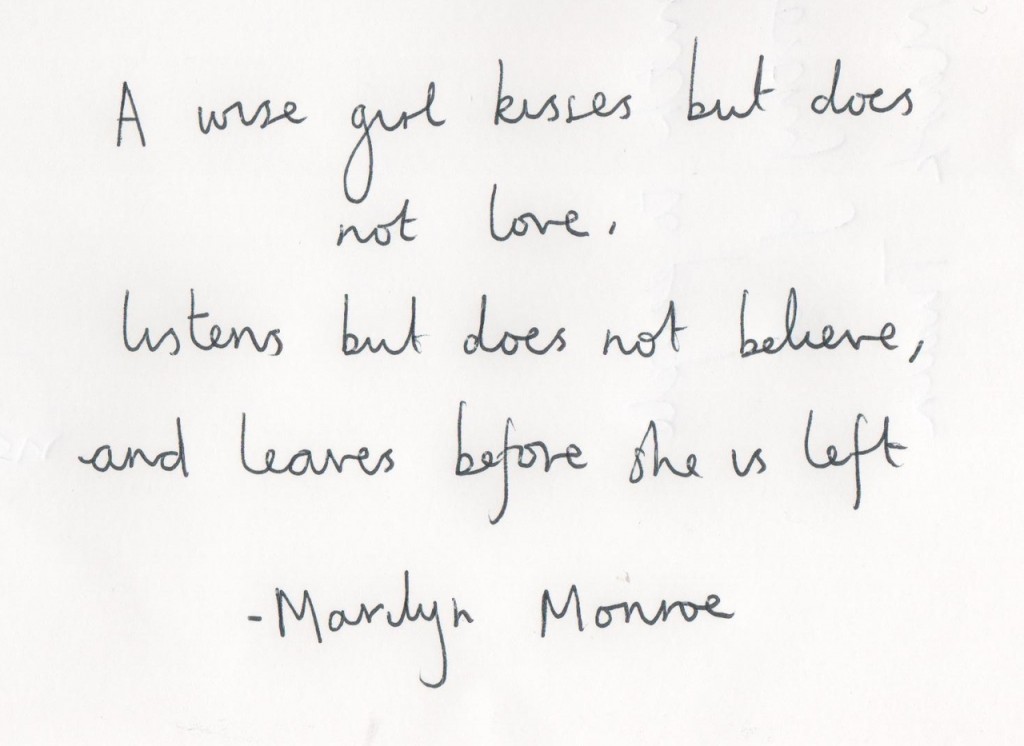 A wise girl kisses but does
not love,
listens but does not believe,
and leaves before she is left
-Marilyn Monroe